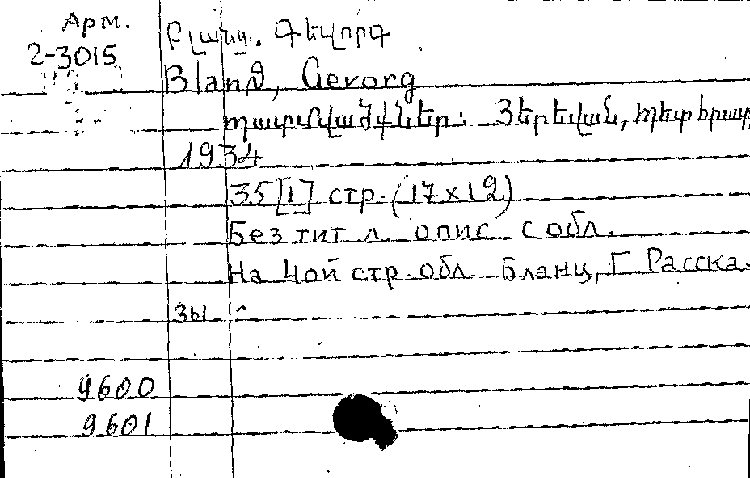 Арм.
2-3015
Բլանց. Գեվորգ
Blanց, Gevorg
Պատմվածքներ. Յերեվան, Պետ հրատ,
1934
35 [1] стр. (17x12)
Без тит л. опис с обл.
На 4ой стр. обл Бланц, Г Расска-
зы
9600
9601